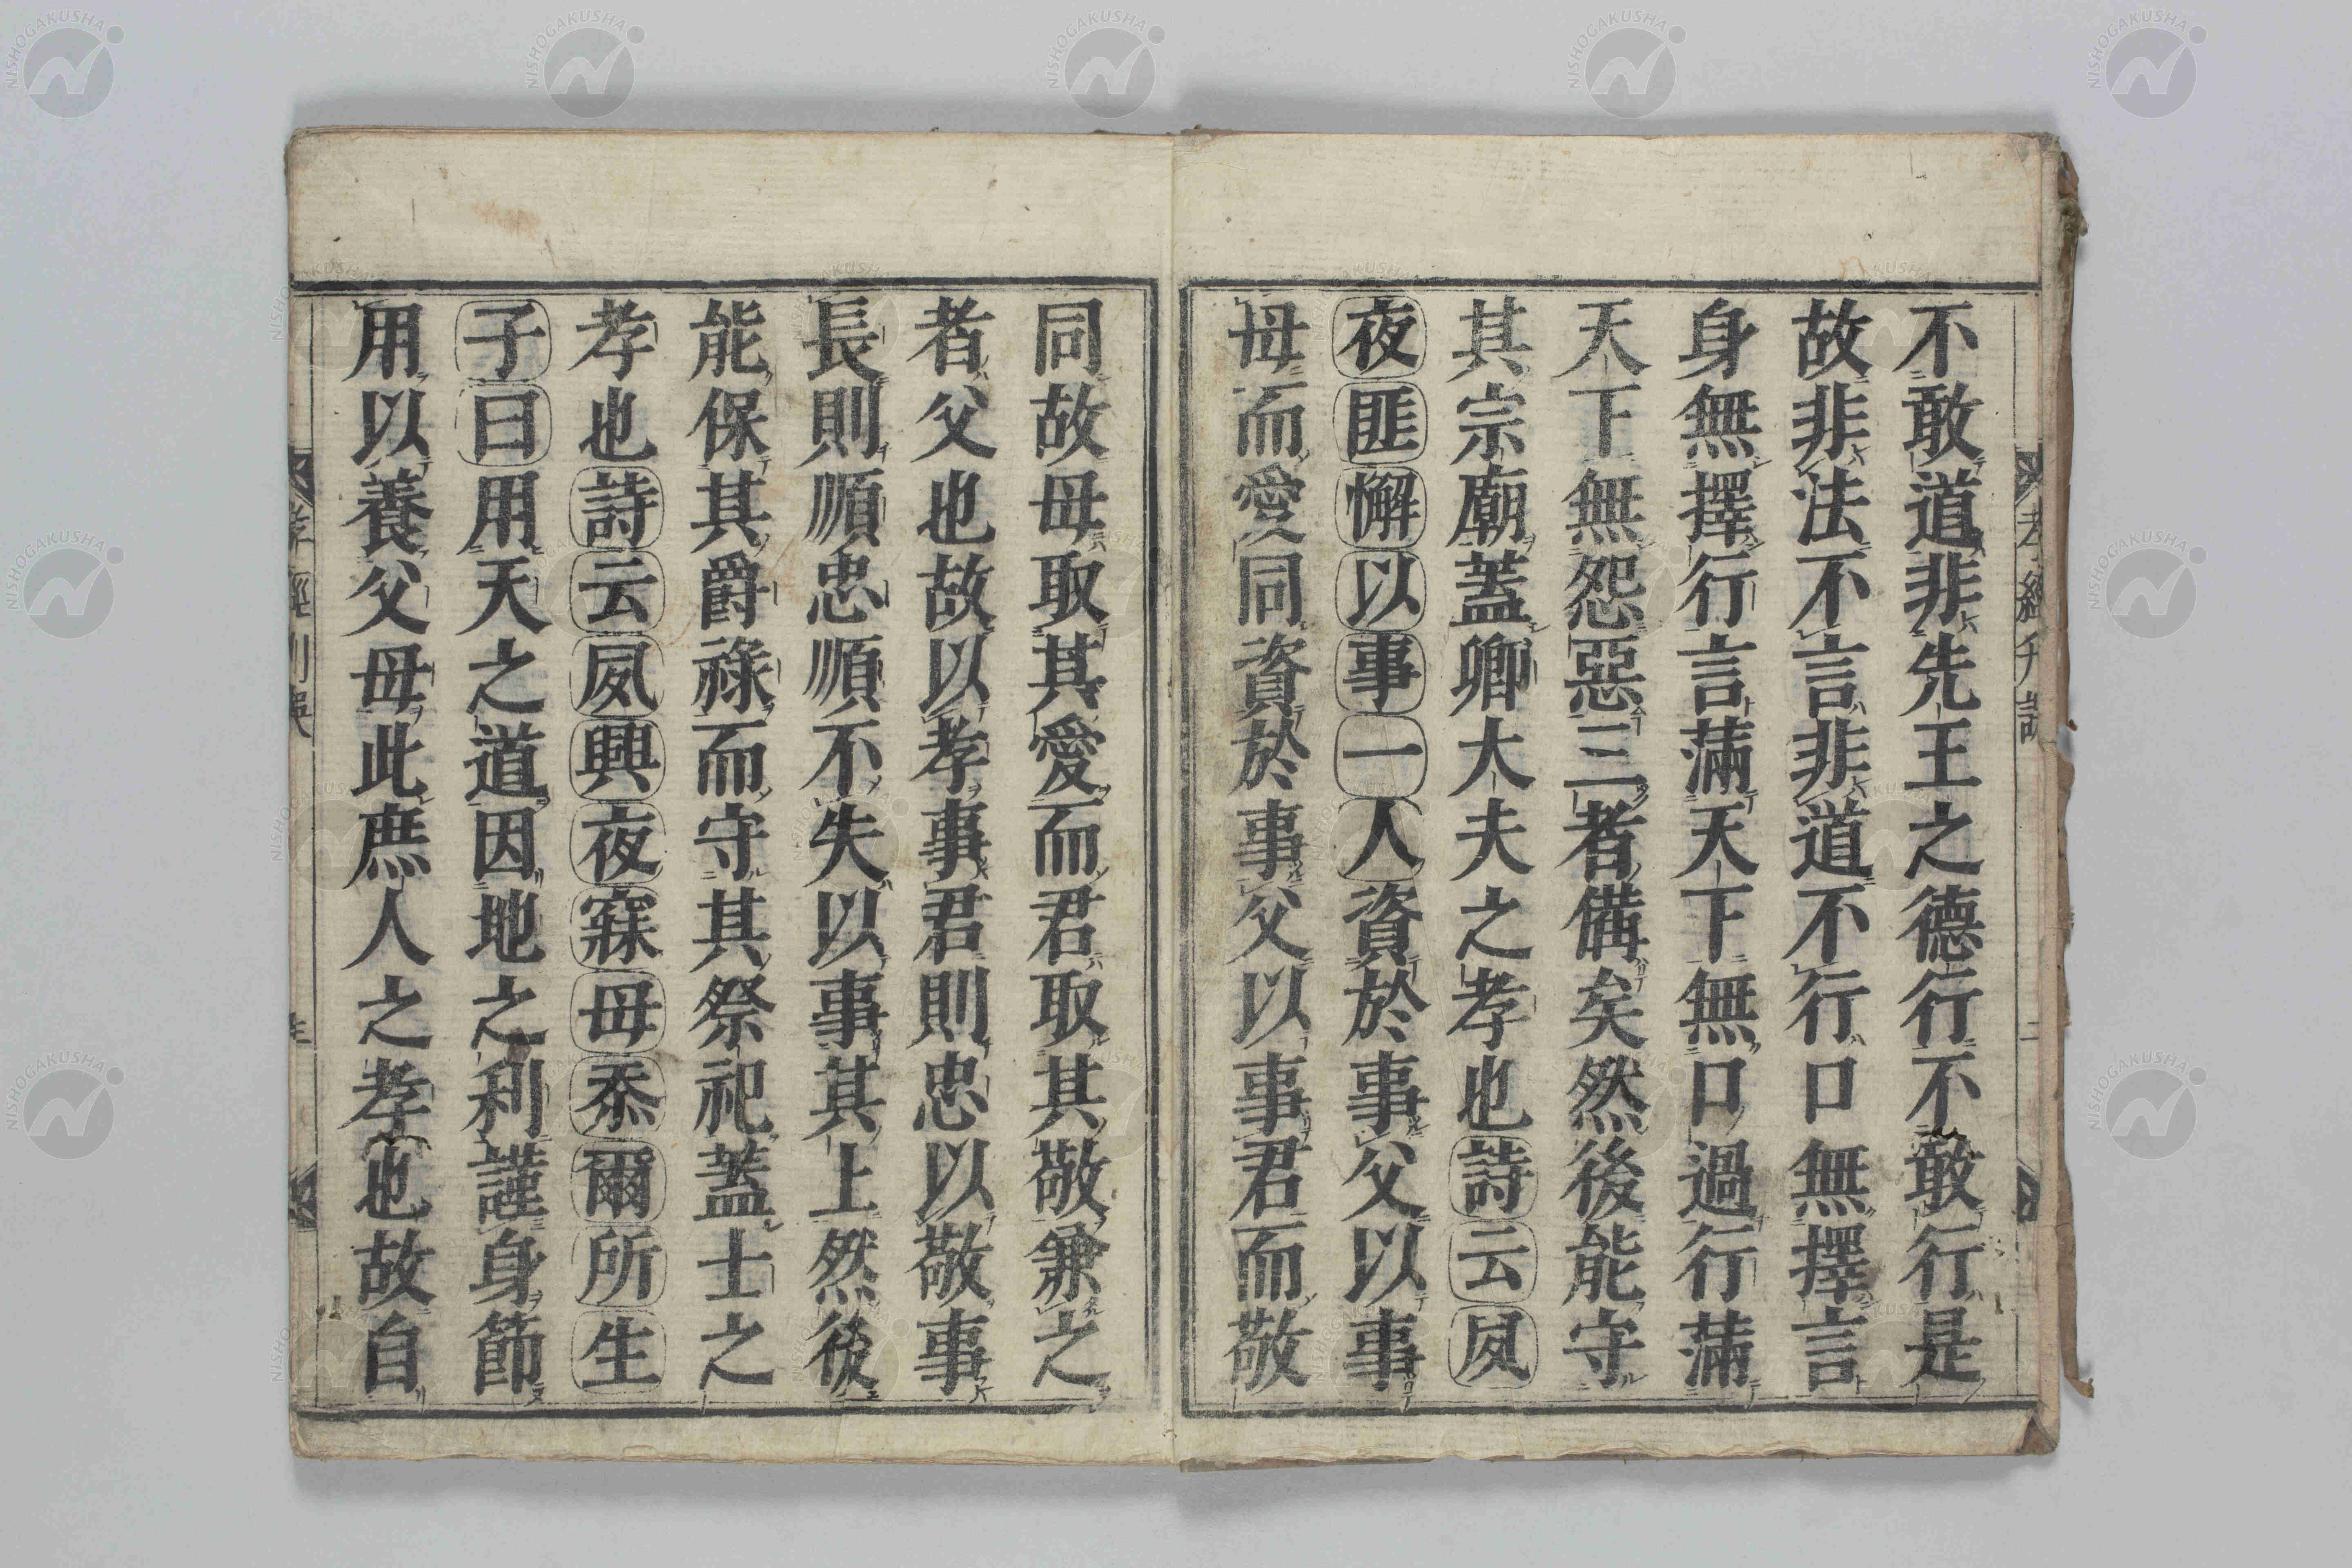 不敢道非先王之德行不敢行是
故非法不言非道不行口無擇言
身無擇行言滿天下無口過行滿
天下無怨惡三者備矣然後能守
其宗廟蓋卿大夫之孝也詩云夙
夜匪懈以事一人資於事父以事
母而愛同資於事父以事君而敬
同故母取其愛而君取其敬兼之
者父也故以孝事君則忠以敬事
長則順忠順不失以事其上然後
能保其爵祿而守其祭祀蓋士之
孝也詩云夙興夜寐毋忝爾所生
子曰用天之道因地之利謹身節
用以養父母此庶人之孝也故自
NISHOGAKUSHA